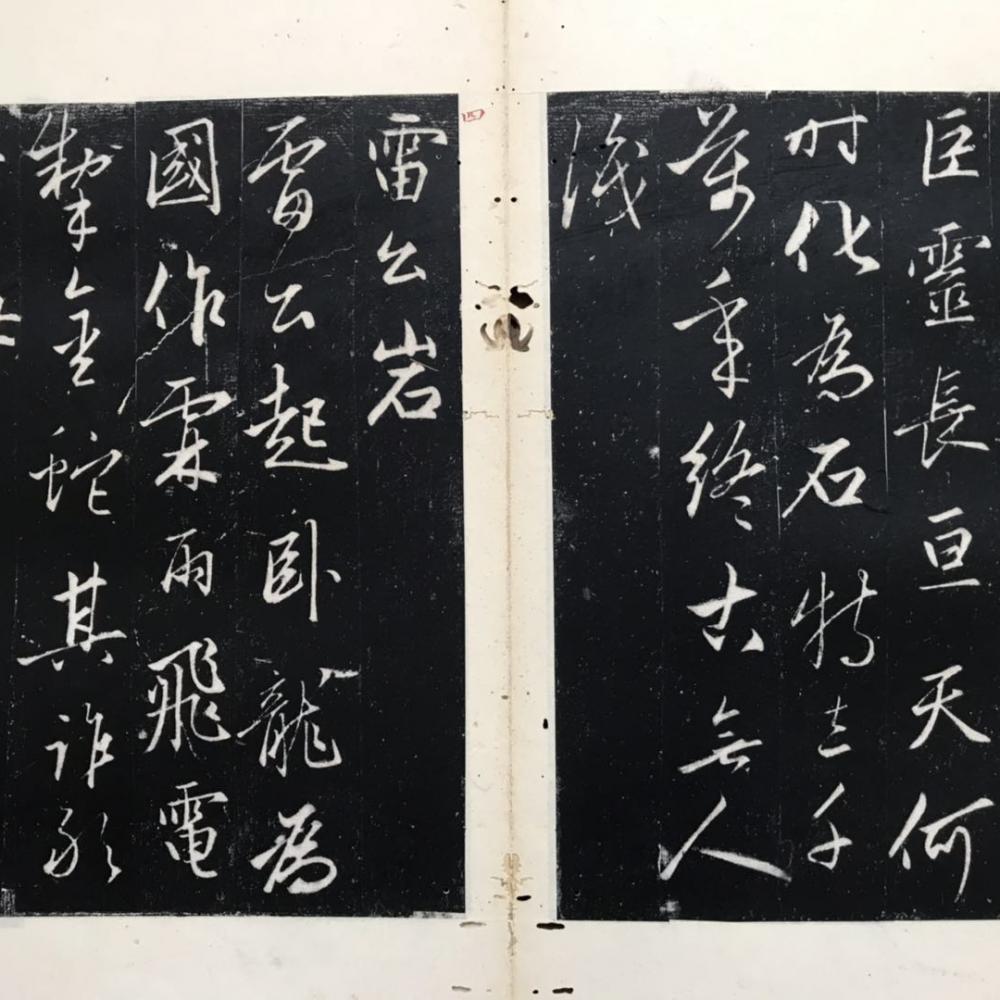 巨靈長亘天何
時化為石特立千
萬年終古無人
識
雷公岩
雷公起卧龍為
國作霖雨飛電
掣金蛇其誰敢